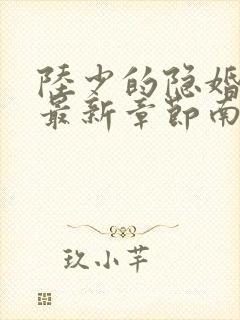 陸少的隐婚
最新章節南
玖小芊